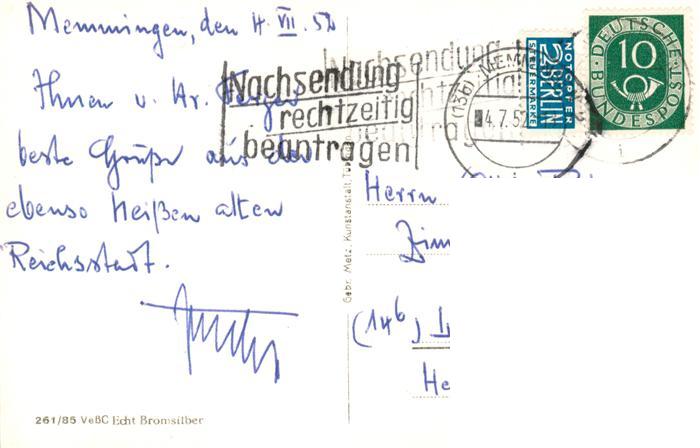 Memmingen, den 4. VII. 52
Ihnen u. Hr.
beste Grüße aus der
ebenso heißen alten
Reichsstadt.
Nachsendung
rechtzeitig
beantragen
Nachsendung
(13b) MEMM
4.7.52
NOTOPFER
2 BERLIN
STEUERMARKE
DEUTSCHE
10
BUNDESPOST
Herrn
(14b)
Gebr. Metz, Kunstanstalt, Tüb
261/85 VeBC Echt Bromsilber